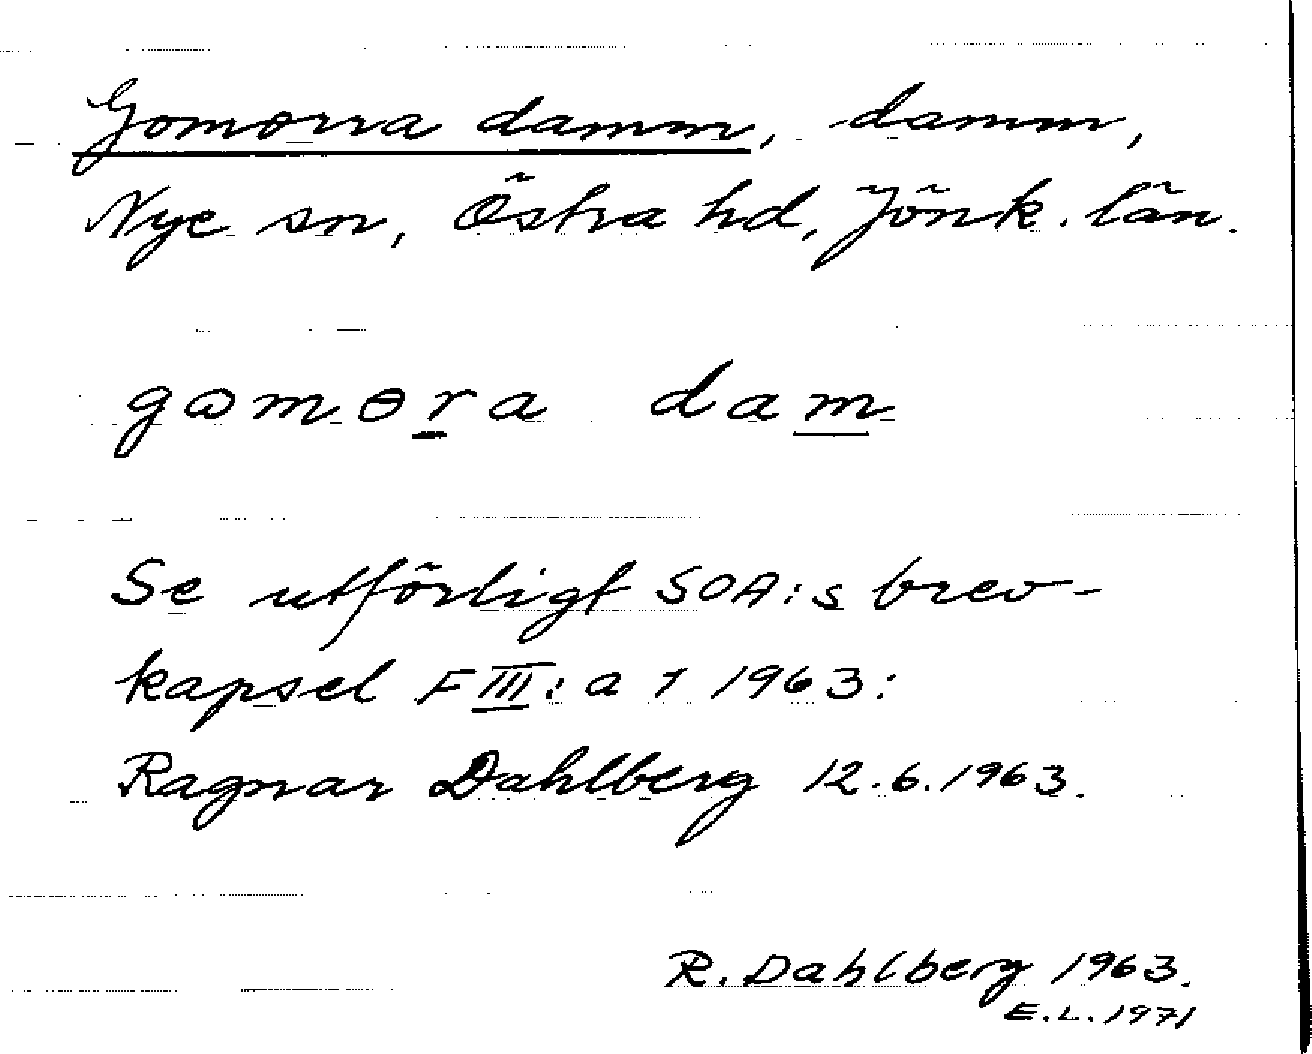 Gomorra damm, damm,
Nye sn, Östra hd, Jönk. län.
gɷmɵra dam
Se utförligt SOA:s brev-
kapsel F III: a 7 1963:
Ragnar Dahlberg 12.6.1963.
R. Dahlberg 1963.
E.L. 1971